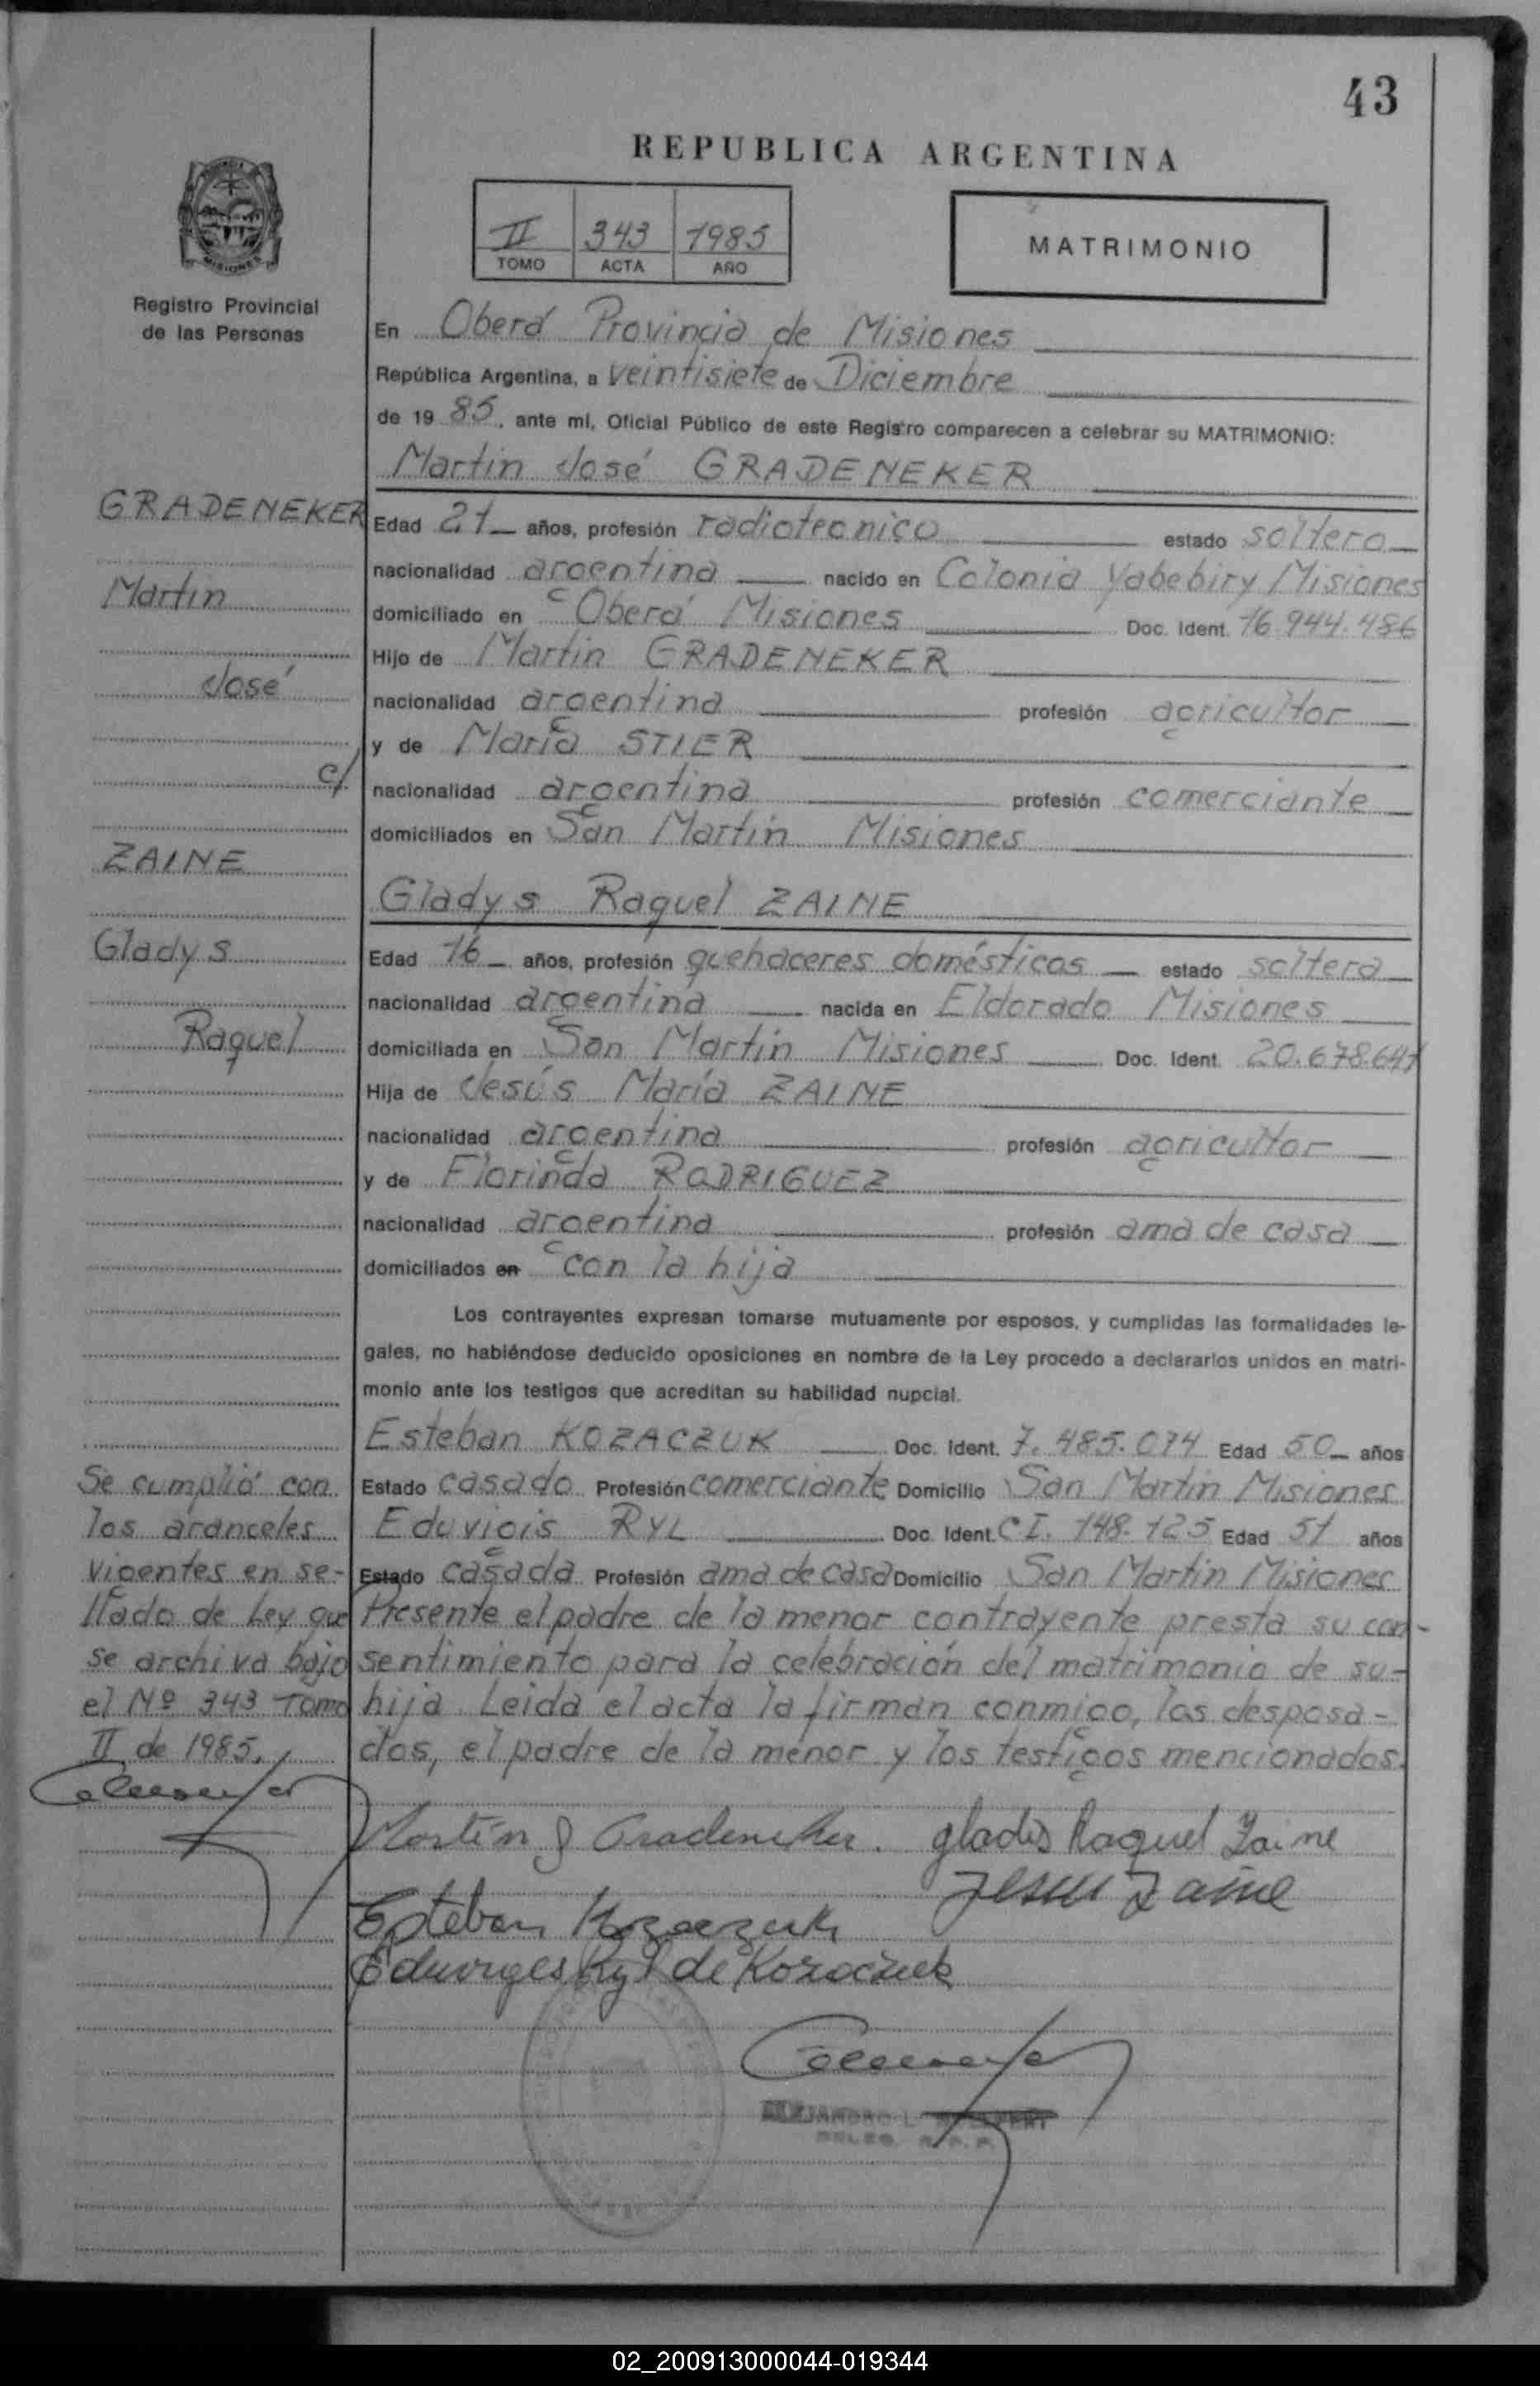 43
REPUBLICA ARGENTINA
II 343 1985
TOMO ACTA AÑO
MATRIMONIO
MISIONES
Registro Provincial
de las Personas
En Oberá Provincia de Misiones
República Argentina, a veintisiete de Diciembre
de 19 85, ante mí, Oficial Público de este Registro comparecen a celebrar su MATRIMONIO:
Martin José GRADENEKER
GRADENEKER
Martin
José
c/
ZAINE
Gladys
Raquel
Edad 21 años, profesión radiotecnico estado soltero
nacionalidad argentina nacido en Colonia Yabebiry Misiones
domiciliado en Oberá Misiones Doc. Ident. 16.944.486
Hijo de Martin GRADENEKER
nacionalidad argentina profesión agricultor
y de María STIER
nacionalidad argentina profesión comerciante
domiciliados en San Martín Misiones
Gladys Raquel ZAINE
Edad 16 años, profesión quehaceres domésticos estado soltera
nacionalidad argentina nacida en Eldorado Misiones
domiciliada en San Martín Misiones Doc. Ident. 20.678.641
Hija de Jesús María ZAINE
nacionalidad argentina profesión agricultor
y de Florinda RODRIGUEZ
nacionalidad argentina profesión ama de casa
domiciliados en con la hija
Los contrayentes expresan tomarse mutuamente por esposos, y cumplidas las formalidades le-
gales, no habiéndose deducido oposiciones en nombre de la Ley procedo a declararlos unidos en matri-
monio ante los testigos que acreditan su habilidad nupcial.
Esteban KOZACZUK Doc. Ident. 7.485.074 Edad 50 años
Estado casado Profesión comerciante Domicilio San Martín Misiones
Eduvigis RYL Doc. Ident. C.I. 148.125 Edad 51 años
Estado casada Profesión ama de casa Domicilio San Martin Misiones
Presente el padre de la menor contrayente presta su con-
sentimiento para la celebración del matrimonio de su-
hija. Leida el acta la firman conmigo, los desposa-
dos, el padre de la menor y los testigos mencionados.
Se cumplió con
los aranceles
vigentes en se-
llado de Ley que
se archiva bajo
el Nº 343 Tomo
II de 1985.
Martín J Gradeneker. gladis Raquel Zaine
Jesus Zaine
Esteban Kozaczuk
Eduviges Ryl de Kozaczuk
02_200913000044-019344